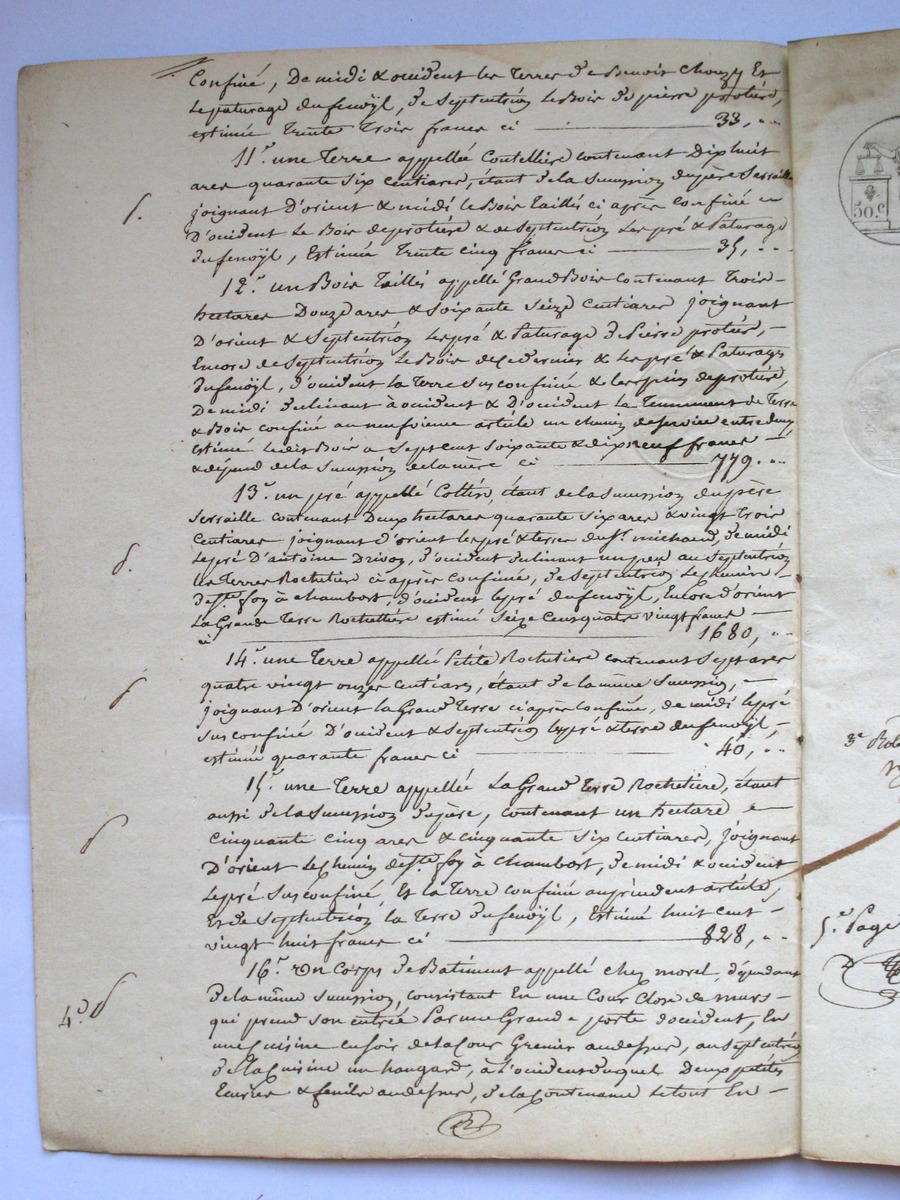 Confiné, De midi & occident les Terres de Benoit Chouzy Et
Le paturage du fenoÿl, de Septentrion Le Bois de pierre protière,
estimée Trente Trois francs ci 33, "
11.° une Terre appellée Coutellière contenant Dix huit
ares quarante Six Centiares, étant de la Succession du père Servaille
joignant D'orient & midi le Bois Taillis ci après Confiné
D'occident Le Bois de protière & de Septentrion Les pré & Paturage
du fenoÿl, Estimée Trente Cinq francs ci 35, "
12.° un Bois Taillis appellé Grand Bois Contenant Trois
hectares Douze ares & Soixante Seize Centiares joignant
D'orient & Septentrion Les pré & Paturage de Pierre protière,
Encore de Septentrion Le Bois de ce dernier & Les pré & Paturages
du fenoÿl, d'occident la Terre Sus confiné & les de protière,
De midi déclinant à occident & D'occident Le Tennement de Terre
& Bois Confiné au neufvieme article un chemin de Service entre deux,
Estimé Ledit Bois a Sept Cent Soixante & dix neuf francs
& dépend de la Succession de la mère ci 779. "
13.° un pré appellé Collin, étant de la Succession du père
Servaille contenant Deux hectares quarante Six ares & vingt Trois
Centiares joignant d'orient les pré & terres du S.r michaud, de midi
Le pré D'antoine Drivon, d'occident déclinant un peu au Septentrion
les Terres Rochetière ci après Confinée, de Septentrion Le Chemin
de S.te foy à chambost, d'occident le pré du fenoÿl, Encore d'orient
La Grande Terre Rochettière estimé Seize Cens quatre vingt francs
ci 1680, "
14.° une Terre appellée Petite Rochetiere contenant Sept ares
quatre vingt onze Centiares, étant de la même Succession,
joignant D'orient la Grand Terre ci après Confinée, de midi le pré
Sus confiné D'occident & Septentrion les pré & terre du fenoÿl,
estimée quarante francs ci 40, "
15.° une Terre appellée La Grand Terre Rochetiere, étant
aussi de la Succession du père, contenant un hectare
Cinquante Cinq ares & Cinquante Six Centiares, joignant
D'orient Le Chemin de S.te foy à Chambost, de midi & occident
Le pré Sus confiné, Et la Terre Confinée au précédent article,
Et de Septentrion la Terre du fenoÿl, Estimée huit Cent
vingt huit francs ci 828, "
16.° Un Corps de Batiment appellé chez morel, dépendant
de la même Succession, Consistant En une Cour Close de murs
qui prend Son entrée Par une Grande porte d'occident, En
une Cuisine en Soir de la Cour Grenier au dessus, au Septentrion
de la Cuisine un hangard, à l'occident duquel deux petites
Ecuries & fenils au dessus, de la Contenance le tout En
4.°
50.c
3.e Rôle
5.e Page